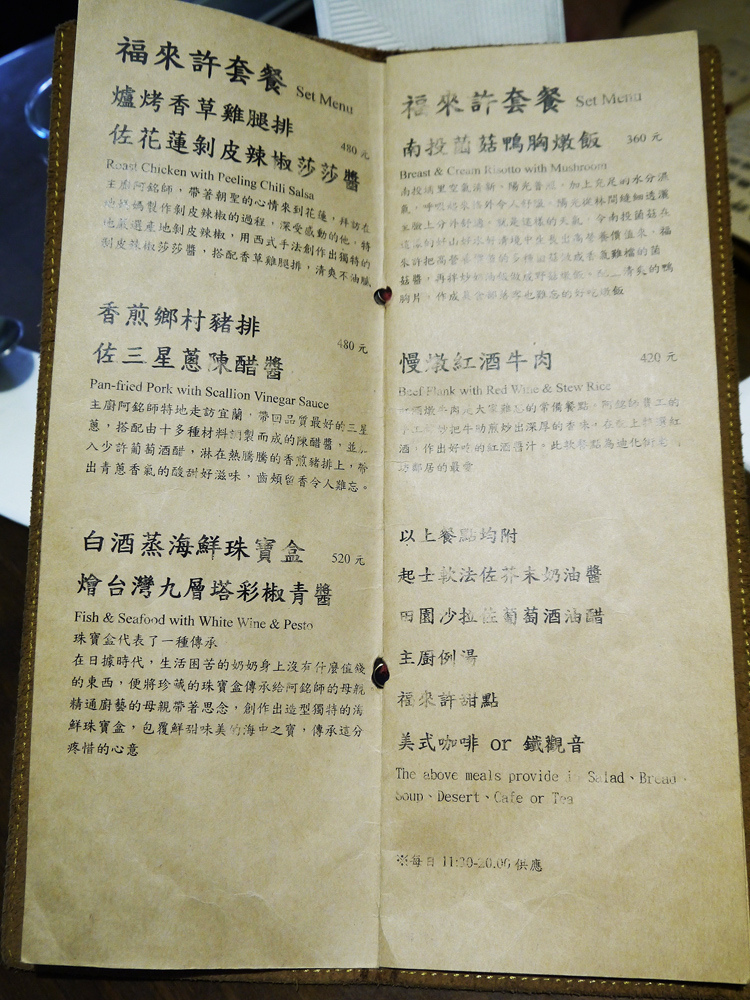 福來許套餐 Set Menu
爐烤香草雞腿排
佐花蓮剝皮辣椒莎莎醬 480 元
Roast Chicken with Peeling Chili Salsa
主廚阿銘師，帶著朝聖的心情來到花蓮，拜訪在
地媽媽製作剝皮辣椒的過程，深受感動的他，特
地嚴選產地剝皮辣椒，用西式手法創作出獨特的
剝皮辣椒莎莎醬，搭配香草雞腿排，清爽不油膩
香煎鄉村豬排
佐三星蔥陳醋醬 480 元
Pan-fried Pork with Scallion Vinegar Sauce
主廚阿銘師特地走訪宜蘭，帶回品質最好的三星
蔥，搭配由十多種材料調製而成的陳醋醬，並加
入少許葡萄酒醋，淋在熱騰騰的香煎豬排上，帶
出青蔥香氣的酸甜好滋味，齒頰留香令人難忘。
白酒蒸海鮮珠寶盒 520 元
燴台灣九層塔彩椒青醬
Fish & Seafood with White Wine & Pesto
珠寶盒代表了一種傳承
在日據時代，生活困苦的奶奶身上沒有什麼值錢
的東西，便將珍藏的珠寶盒傳承給阿銘師的母親
精通廚藝的母親帶著思念，創作出造型獨特的海
鮮珠寶盒，包覆鮮甜味美的海中之寶，傳承這分
疼惜的心意
福來許套餐 Set Menu
南投菌菇鴨胸燉飯 360 元
Breast & Cream Risotto with Mushroom
南投埔里空氣清新、陽光普照，加上充足的水分濕
氣，呼吸起來格外令人舒暢。陽光從林間縫細透灑
至臉上分外舒適，就是這樣的天氣，令南投菌菇在
這樣的好山好水好環境中生長出高營養價值來，福
來許把高營養價值的多種菇菌
菇醬，再拌炒奶油 清爽的鴨
胸片，作成 也難忘的好吃燉飯
慢燉紅酒牛肉 420 元
Beef Flank with Red Wine & Stew Rice
燉牛肉是大家難忘的常備餐點，阿銘師費工的
把牛肋煎炒出深厚的香味，在飯上 紅
酒，作出好吃的紅酒醬汁。此款餐點為迪化街
坊鄰居的最愛
以上餐點均附
起士軟法佐芥末奶油醬
田園沙拉佐葡萄酒油醋
主廚例湯
福來許甜點
美式咖啡 or 鐵觀音
The above meals provide in Salad、Bread、
Soup、Desert、Cafe or Tea
※每日 11:30-20:00 供應